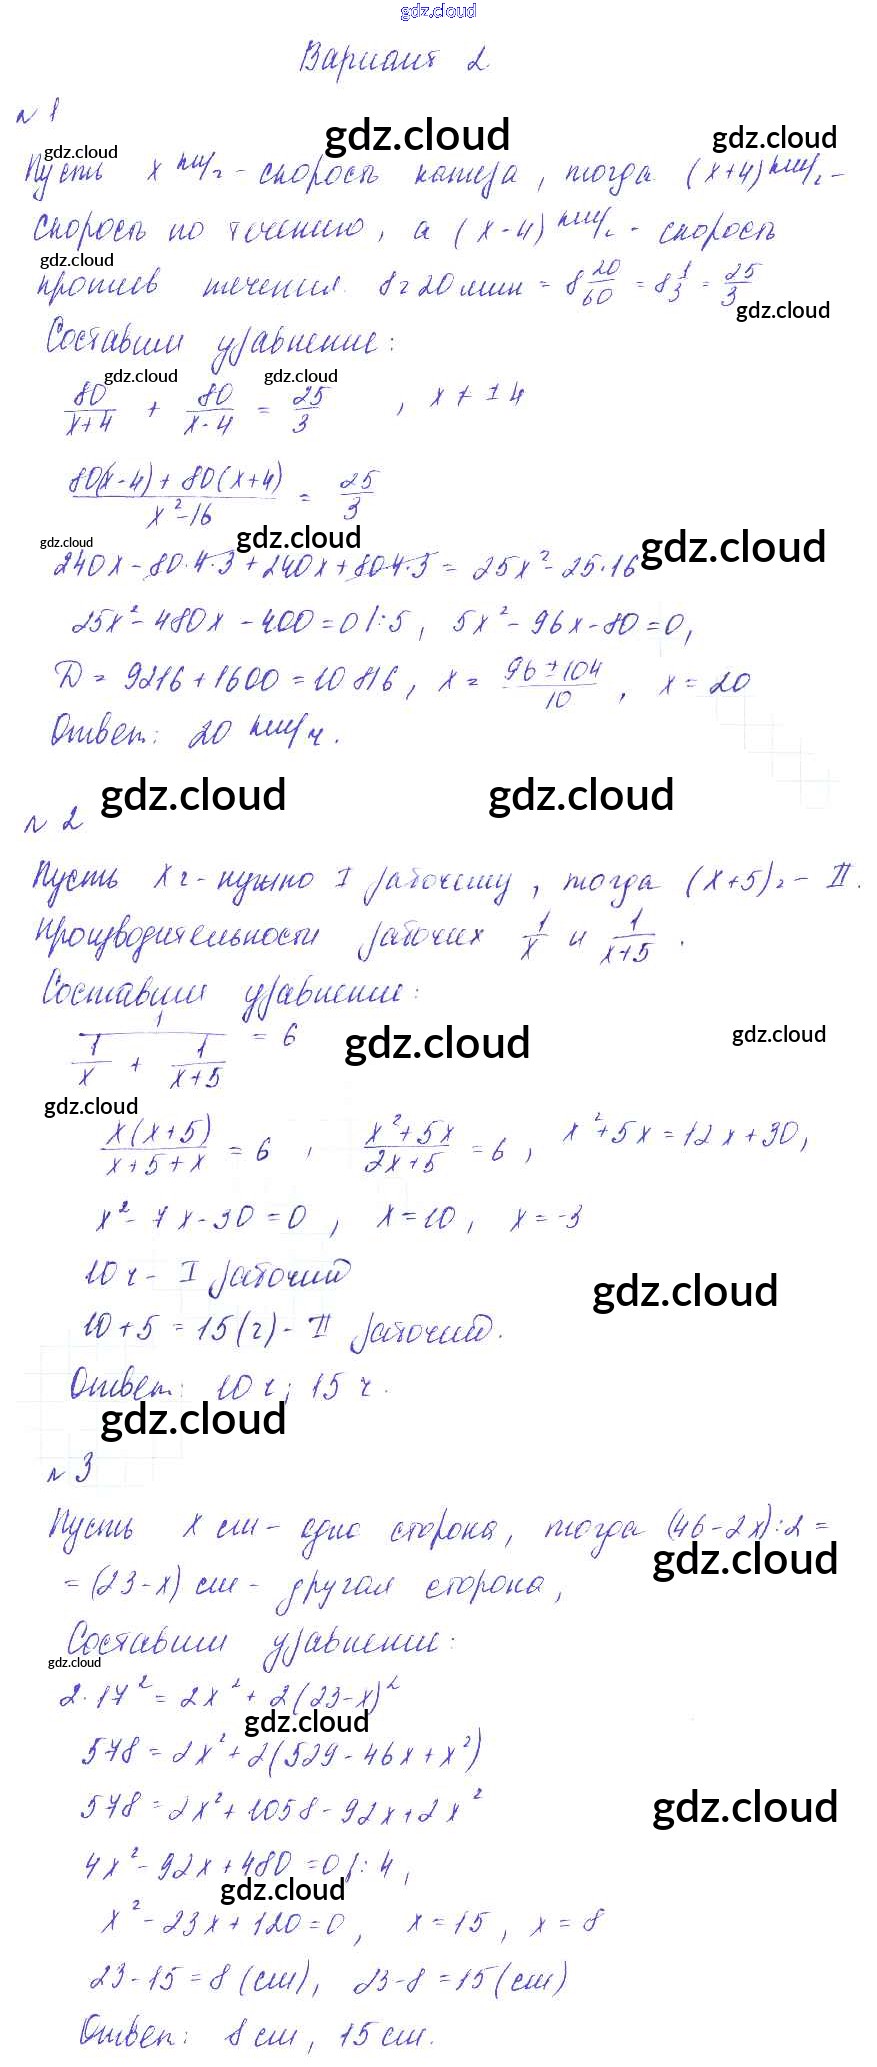 gdz.cloud
Вариант 2
№ 1
gdz.cloud gdz.cloud gdz.cloud
Пусть x км/ч - скорость катера, тогда (x+4) км/ч -
скорость по течению, а (x-4) км/ч - скорость
gdz.cloud
против течения. 8 ч 20 мин = 8 20/60 = 8 1/3 = 25/3
gdz.cloud
Составим уравнение:
gdz.cloud gdz.cloud
80/(x+4) + 80/(x-4) = 25/3, x ≠ ±4
(80(x-4) + 80(x+4))/(x²-16) = 25/3
gdz.cloud gdz.cloud gdz.cloud
240x - 80·4·3 + 240x + 80·4·3 = 25x² - 25·16
25x² - 480x - 400 = 0 |:5, 5x² - 96x - 80 = 0,
D = 9216 + 1600 = 10816, x = (96 ± 104)/10, x = 20
Ответ: 20 км/ч.
gdz.cloud gdz.cloud
№ 2
Пусть x ч - нужно I рабочему, тогда (x+5) ч - II.
Производительности рабочих 1/x и 1/(x+5).
Составим уравнение:
1/(1/x + 1/(x+5)) = 6
gdz.cloud gdz.cloud
gdz.cloud
x(x+5)/(x+5+x) = 6, (x²+5x)/(2x+5) = 6, x²+5x = 12x+30,
x² - 7x - 30 = 0, x = 10, x = -3
10 ч - I рабочий
gdz.cloud
10 + 5 = 15 (ч) - II рабочий.
Ответ: 10 ч; 15 ч.
gdz.cloud
№ 3
Пусть x см - одна сторона, тогда (46-2x):2 =
gdz.cloud
= (23-x) см - другая сторона,
Составим уравнение:
gdz.cloud
2·17² = 2x² + 2(23-x)²
gdz.cloud
578 = 2x² + 2(529 - 46x + x²)
578 = 2x² + 1058 - 92x + 2x²
gdz.cloud
4x² - 92x + 480 = 0 |:4,
gdz.cloud
x² - 23x + 120 = 0, x = 15, x = 8
23 - 15 = 8 (см), 23 - 8 = 15 (см)
Ответ: 8 см, 15 см.